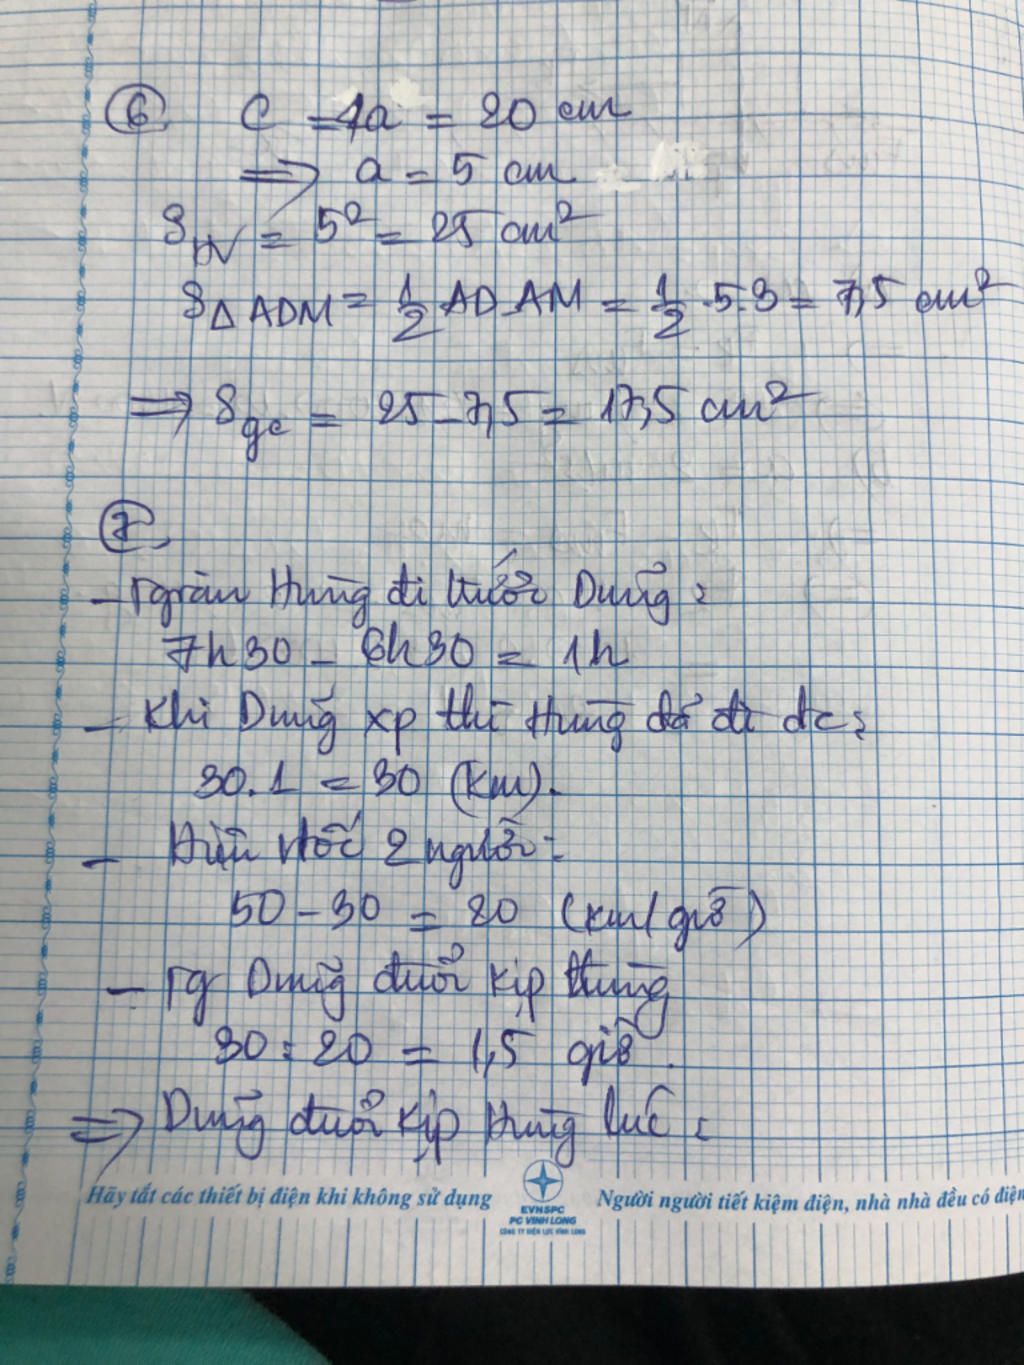 6 C = 4a = 20 cm
=> a = 5 cm
S HV = 5² = 25 cm²
S Δ ADM = 1/2 AD.AM = 1/2 .5.3 = 7,5 cm²
=> S gc = 25 - 7,5 = 17,5 cm²
7
- Tgian Hùng đi trước Dũng :
7h30 - 6h30 = 1h
- Khi Dũng xp thì Hùng đã đi đc :
30.1 = 30 (km).
- Hiệu vtốc 2 người :
50 - 30 = 20 (km/giờ)
- Tg Dũng đuổi kịp Hùng
30 : 20 = 1,5 giờ.
=> Dũng đuổi kịp Hùng lúc :
Hãy tắt các thiết bị điện khi không sử dụng
EVNSPC
PC VINH LONG
CÔNG TY ĐIỆN LỰC VĨNH LONG
Người người tiết kiệm điện, nhà nhà đều có điện